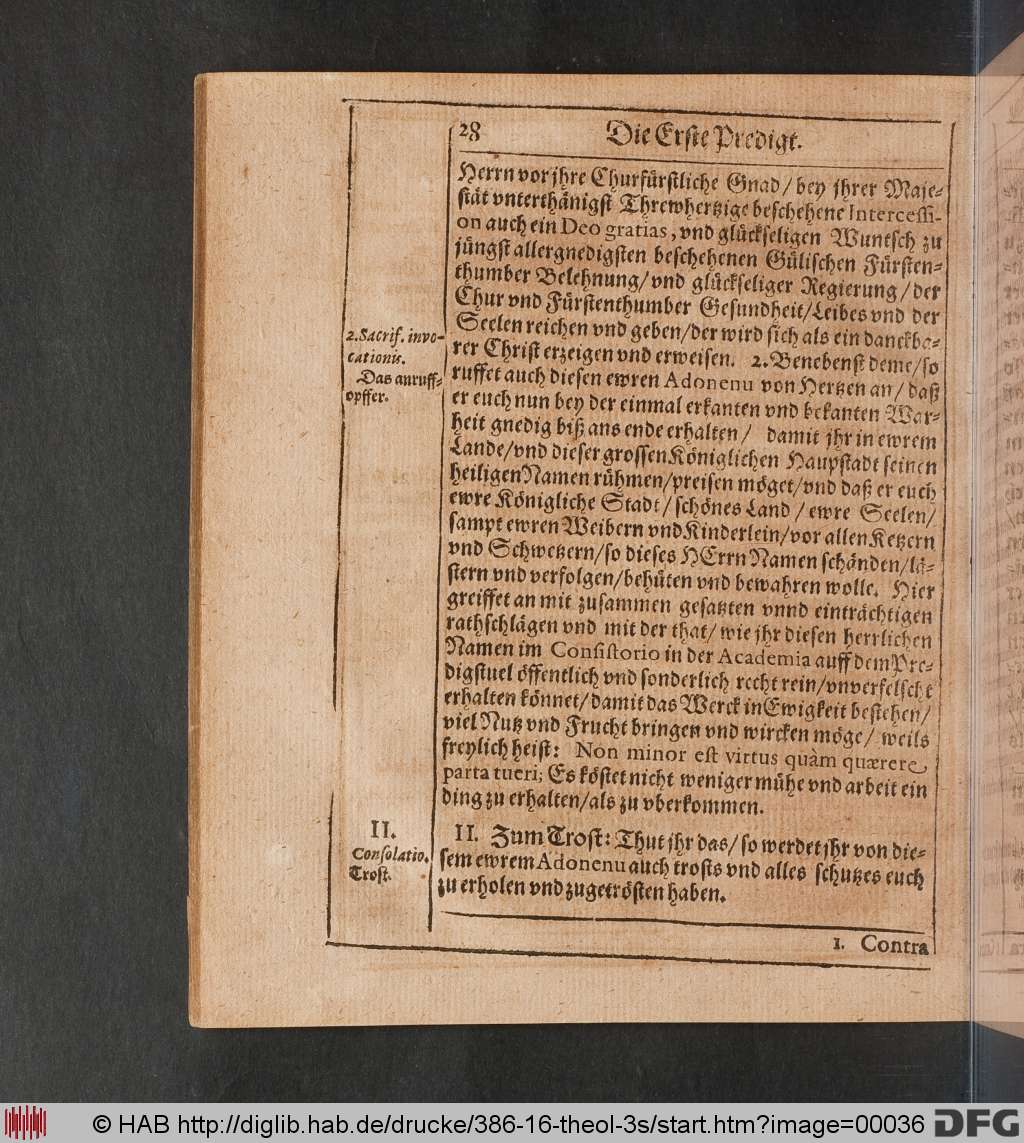 28 Die Erste Predigt.
Herrn vor jhre Churfürstliche Gnad / bey jhrer Maje-
stät vnterthänigst Threwhertzige beschehene Intercessi-
on auch ein Deo gratias, vnd glückseligen Wuntsch zu
jüngst allergnedigsten beschehenen Gülischen Fürsten-
thumber Belehnung / vnd glückseliger Regierung / der
Chur vnd Fürstenthumber Gesundheit / Leibes vnd der
Seelen reichen vnd geben / der wird sich als ein danckba-
rer Christ erzeigen vnd erweisen. 2. Benebenst deme / so
ruffet auch diesen ewren Adonenu von Hertzen an / daß
er euch nun bey der einmal erkanten vnd bekanten War-
heit gnedig biß ans ende erhalten / damit jhr in ewrem
Lande / vnd dieser grossen Königlichen Haupstadt seinen
heiligen Namen rühmen / preisen möget / vnd daß er euch
ewre Königliche Stadt / schönes Land / ewre Seelen /
sampt ewren Weibern vnd Kinderlein / vor allen Ketzern
vnd Schwetzern / so dieses HErrn Namen schänden / lä-
stern vnd verfolgen / behüten vnd bewahren wolle. Hier
greiffet an mit zusammen gesatzten vnnd einträchtigen
rathschlägen vnd mit der that / wie jhr diesen herrlichen
Namen im Consistorio in der Academia auff dem Pre-
digstuel öffentlich vnd sonderlich recht rein / vnverfelscht
erhalten könnet / damit das Werck in Ewigkeit bestehen /
viel Nutz vnd Frucht bringen vnd wircken möge / weils
freylich heist: Non minor est virtus quàm quærere
parta tueri; Es köstet nicht weniger mühe vnd arbeit ein
ding zu erhalten / als zu vberkommen.
II. Zum Trost: Thut jhr das / so werdet jhr von die-
sem ewrem Adonenu auch trosts vnd alles schutzes euch
zu erholen vnd zugetrösten haben.
1. Contra
2. Sacrif. invo-
cationis.
Das anruff-
opffer.
II.
Consolatio.
Trost.
© HAB http://diglib.hab.de/drucke/386-16-theol-3s/start.htm?image=00036
DFG